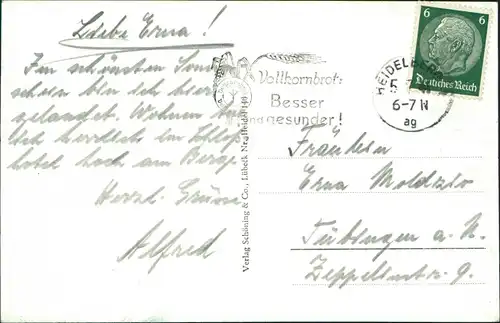 Liebe Erna!
Im schönsten Sonnen
schein bin ich hier
gelandet. Wohnen
lich herrlich im Schloß
hotel hoch am Berge.
Herzl. Grüsse
Alfred
Verlag Schöning & Co., Lübeck Nr. Heidelb. 149
Vollkornbrot:
Besser
und gesunder!
HEIDELBERG
5
6-7 N
ag
6 6
Deutsches Reich
Fräulein
Erna
Tübingen a. N.
Zeppelinstr. 9.